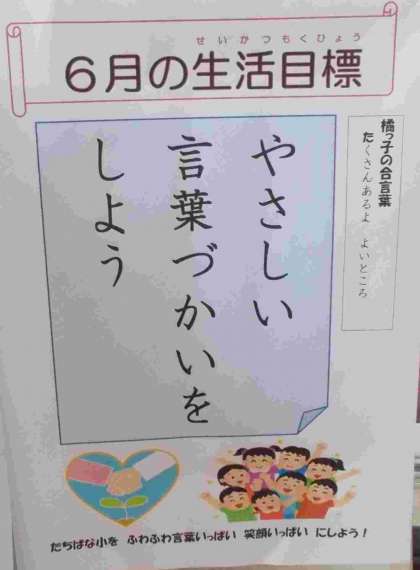 せいかつもくひょう
6月の生活目標
橘っ子の合言葉
たくさんあるよ よいところ
やさしい
言葉づかいを
しよう
たちばな小を ふわふわ言葉いっぱい 笑顔いっぱい にしよう!